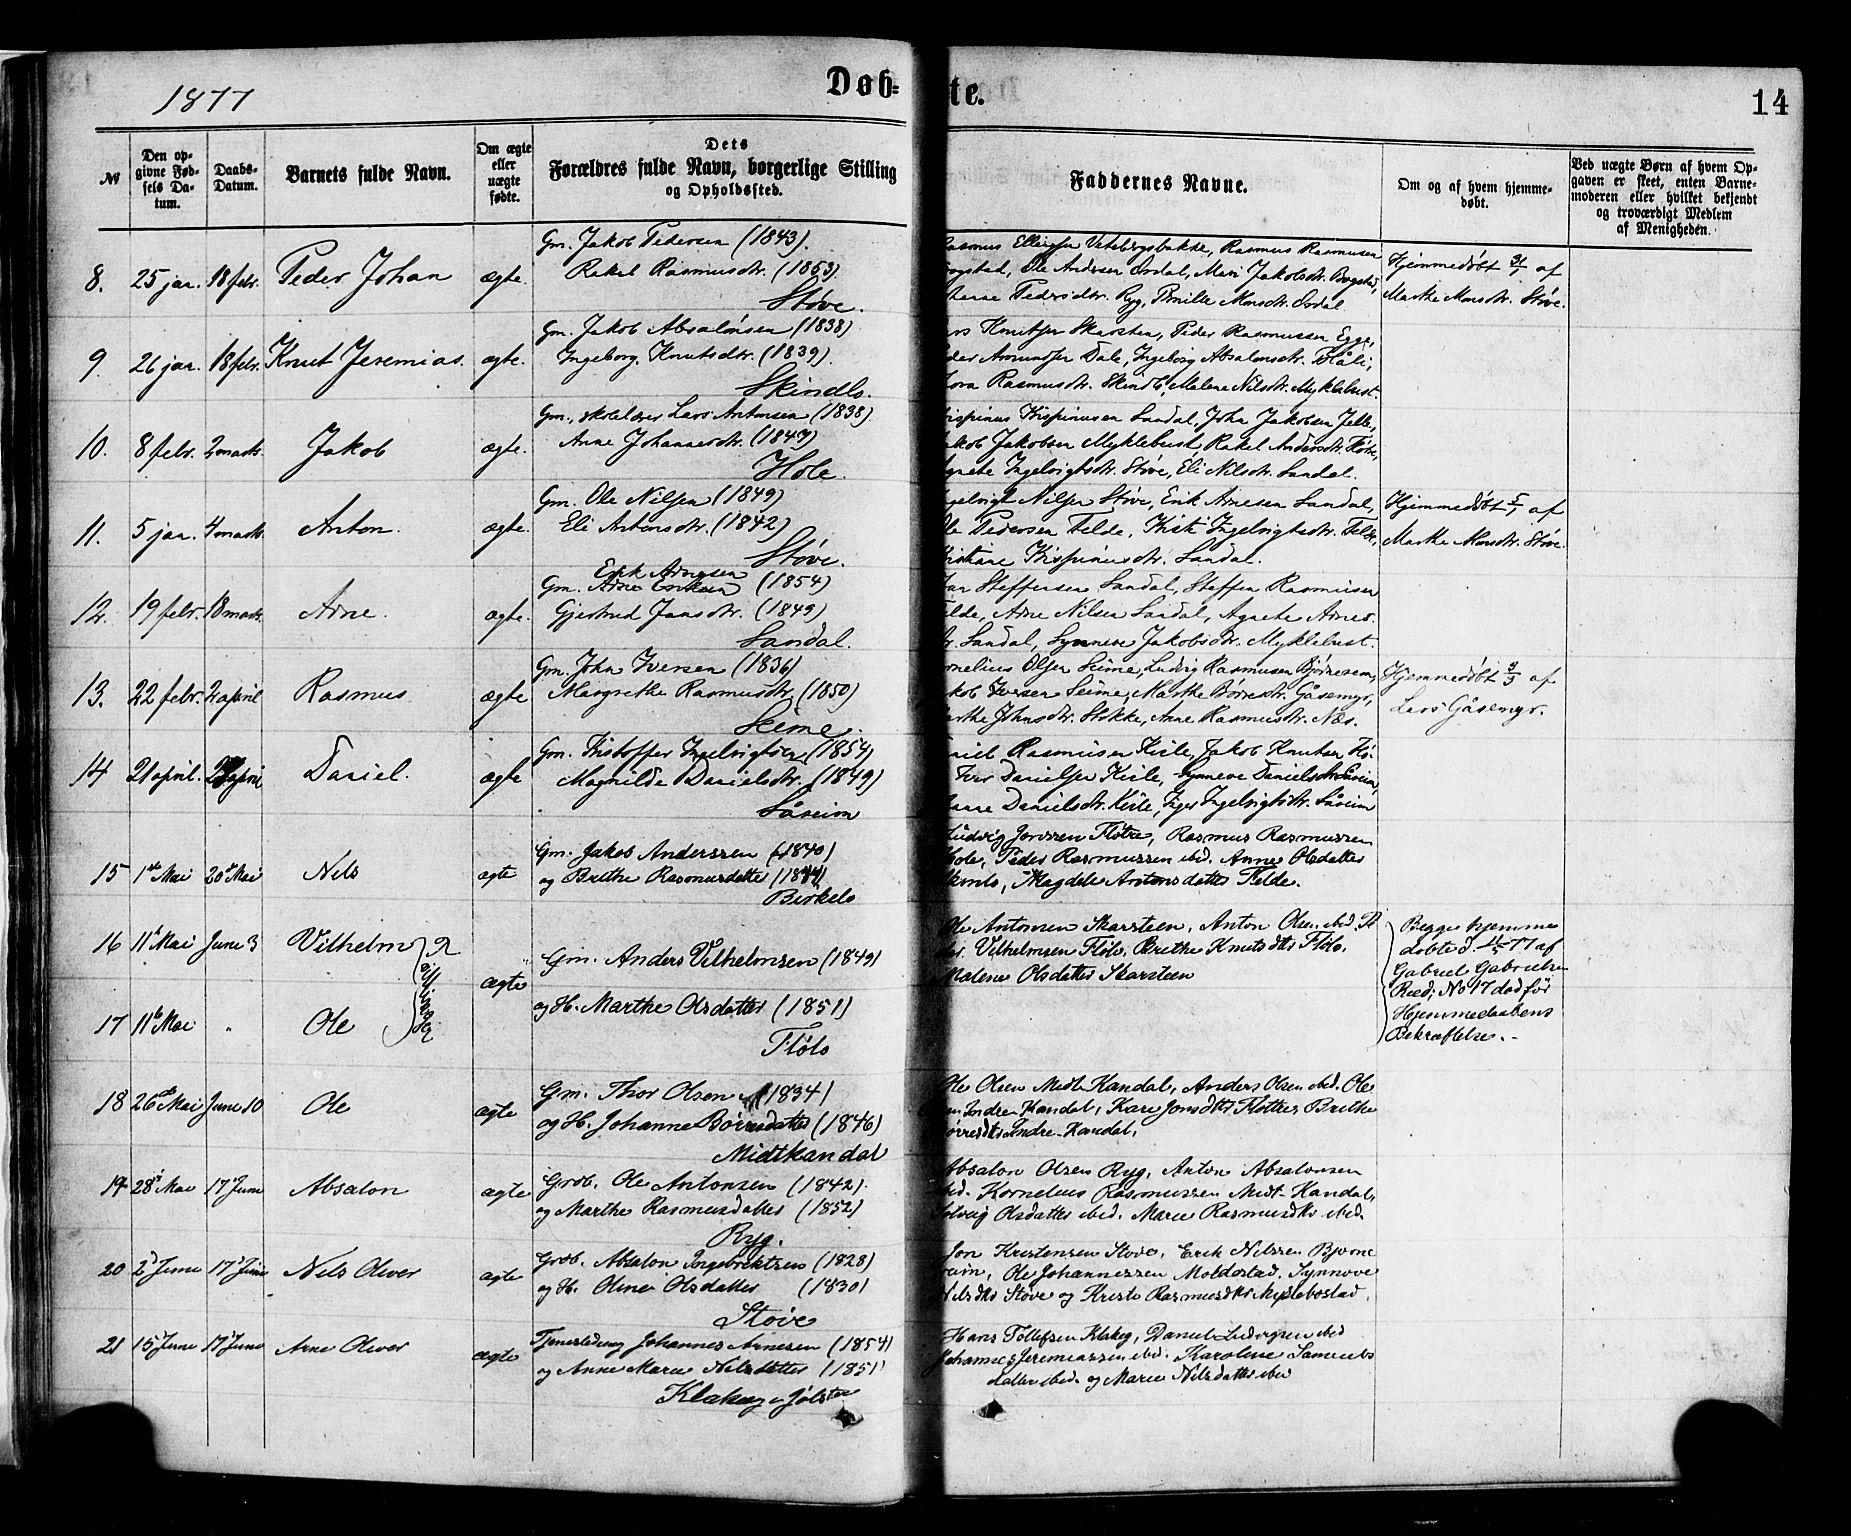 1877
Døb=
te.
14
№
Den op-
givne Fød-
sels Da-
tum.
Daabs-
Datum.
Barnets fulde Navn.
Om ægte
eller
uægte
fødte.
Dets
Forældres fulde Navn, borgerlige Stilling
og Opholdssted.
Faddernes Navne.
Om og af hvem hjemme-
døbt.
Ved uægte Børn af hvem Op-
gaven er skeet, enten Barne-
moderen eller hvilket bekjendt
og troværdigt Medlem
af Menigheden.
8. 25 jan. 18 febr. Peder Johan ægte.
Gm. Jakob Pedersen (1843).
Rakel Rasmusdtr. (1853)
Støve.
Rasmus Rasmusen
Ole Andersen Ordal, Mari Jakobsdtr. Bogstad,
Pedersdtr. Ryg, Pernille Monsdtr. Ordal
Hjemmedøbt 31/1 af
Marthe Monsdtr. Støve.
9. 26 jan. 18 febr. Knut Jeremias. ægte.
Gm. Jakob Absalonsen (1838)
Ingeborg Knutsdtr. (1839).
Skindlo.
Knutsen Skarsten, Peder Rasmussen Egge,
Amundsen Dale, Ingeborg Absalonsdtr.
Rasmusdtr. Skindlo, Malene Nilsdtr. Myklebust.
10. 8 febr. 2 marts. Jakob ægte.
Gm., skolelærer Lars Antonsen (1838).
Anne Johannesdtr. (1847)
Hole.
Krispinusen Sandal, John Jakobsen Jelle,
Jakobsen Myklebust, Rakel Andersdtr.
Ingelvigtsdtr. Støve, Eli Nilsdtr. Sandal.
11. 5 jan. 4 marts. Anton. ægte.
Gm. Ole Nilsen (1849)
Eli Antonsdtr. (1842)
Støve.
Nilsen Støve, Erik Arnesen Sandal,
Pedersen Felde, Kisti Ingelvigtsdtr. Felde,
Krispinusdtr. Sandal.
Hjemmedøbt 5/1 af
Marthe Monsdtr. Støve.
12. 19 febr. 18 marts. Arne. ægte.
Erik Arnesen
Gm. Arne Eriksen (1854)
Gjertrud Jansdtr. (1849)
Sandal.
Steffensen Sandal, Steffen Rasmusen
Felde, Arne Nilsen Sandal, Agnete Arnes-
dtr. Sandal, Synneve Jakobsdtr. Myklebust.
13. 22 febr. 2 april Rasmus ægte
Gm. John Iversen (1836)
Margrethe Rasmusdtr. (1850)
Seime.
Olsen Seime, Ludvig Rasmusen Bjørnesem,
Iversen Seime, Marthe Børresdtr. Gåsemyr,
Marthe Johnsdtr. Stokke, Anne Rasmusdtr. Næs.
Hjemmedøbt 9/3 af
Lars Gåsemyr.
14 21 april. april Daniel. ægte
Gm. Kristoffer Ingelvigtsen (1854)
Magnilde Danielsdtr. (1849)
Såseim
Rasmusen Kirle, Jakob Knutsen
Iver Danielsen Kirle, Synneve Danielsdtr. Såseim,
Danielsdtr. Kirle, Inger Ingelvigtsdtr. Såseim
15 1ste Mai 20de Mai Nils ægte
Gm. Jakob Anderssen (1840)
og Brithe Rasmusdatter
Birkelo
Ludvig Jonssen Fløtre, Rasmus Rasmussen
Hole, Peder Rasmussen ibid. Anne Olsdatter
Magdele Antonsdatter Felde.
16 11te Mai June 3 Vilhelm
Tvillinger
17 11te Mai " Ole
ægte
Gm. Anders Vilhelmsen (1849)
og H. Marthe Olsdatter (1851)
Flølo
Ole Antonsen Skarsteen, Anton Olsen ibid.
Vilhelmsen Flølo, Brithe Knutsdtr Flølo,
Malene Olsdatter Skarsteen
Begge hjemme
døbte d. 11/5 77 af
Gabriel Gabrielsen
Reed; No 17 død før
Hjemmedaabens
Bekræftelse. -
18 26de Mai June 10 Ole ægte
Gm. Thor Olsen (1834)
og H. Johanne Børresdatter (1846)
Midtkandal
Ole Olsen Midtkandal, Anders Olsen ibid. Ole
Indre Kandal, Kari Jonsdtr Fløtre, Brithe
Børresdtr Indre-Kandal.
19 28de Mai 17 Juni Absalon ægte
Grdb. Ole Antonsen (1842)
og Marthe Rasmusdatter (1852)
Ryg.
Absalon Olsen Ryg, Anton Absalonsen
ibid. Kornelius Rasmussen Midt-Kandal,
Solveig Olsdatter ibid. Marie Rasmusdtr ibid.
20 2 June 17 June Nils Oliver ægte
Grdb. Absalon Ingebriktsen (1828)
og H. Oline Olsdatter (1830)
Støve
Jon Kristensen Støve, Erik Nilssen Bjørne
reim, Ole Johannessen Moldestad, Synnøve
Nilsdtr Støve og Kristi Rasmusdtr Myklebostad.
21 15 June 17 June Arne Oliver ægte
Tjenestedreng Johannes Arnesen (1854)
og Anne Marie Nilsdatter (1851)
Klakeg i Jølster
Hans Tollefsen Klakeg, Daniel Ludvigsen ibid
Johannes Jeremiassen ibid. Karoline Samuels
datter ibid. og Marie Nilsdatter ibid